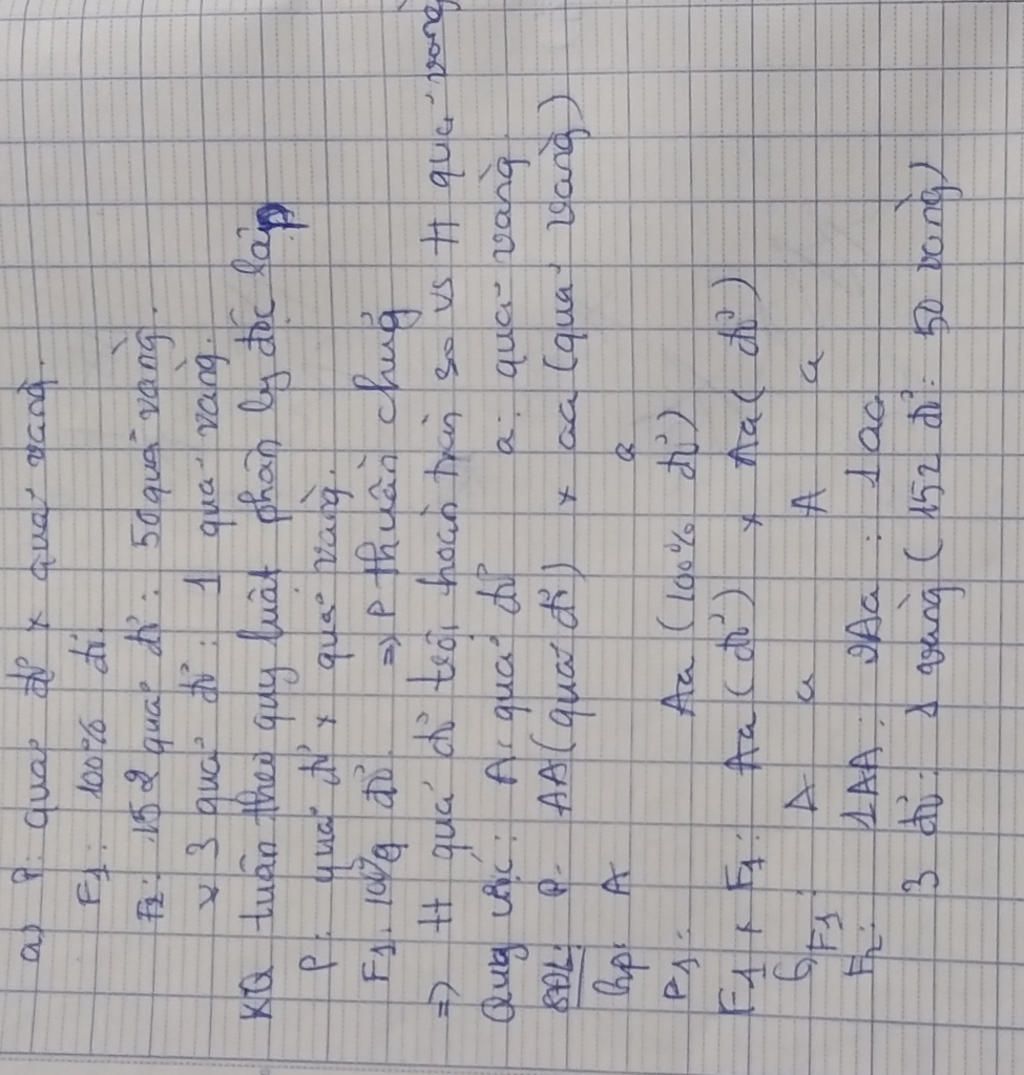 a) P: quả đỏ x quả vàng.
F1: 100% đỏ.
F2: 152 quả đỏ: 50 quả vàng.
x 3 quả đỏ: 1 quả vàng.
KQ tuân theo quy luật phân ly độc lập
P: quả đỏ x quả vàng.
F1: 100% đỏ. => P thuần chủng
=> tt quả đỏ trội hoàn toàn so vs tt quả vàng
Quy ước: A: quả đỏ a: quả vàng.
SĐL: P: AA (quả đỏ) x aa (quả vàng)
Gp: A a
F1: Aa (100% đỏ)
F1 x F1: Aa (đỏ) x Aa (đỏ)
GF1: A a A a
F2: 1AA: 2Aa: 1aa
3 đỏ: 1 vàng (152 đỏ: 50 vàng)